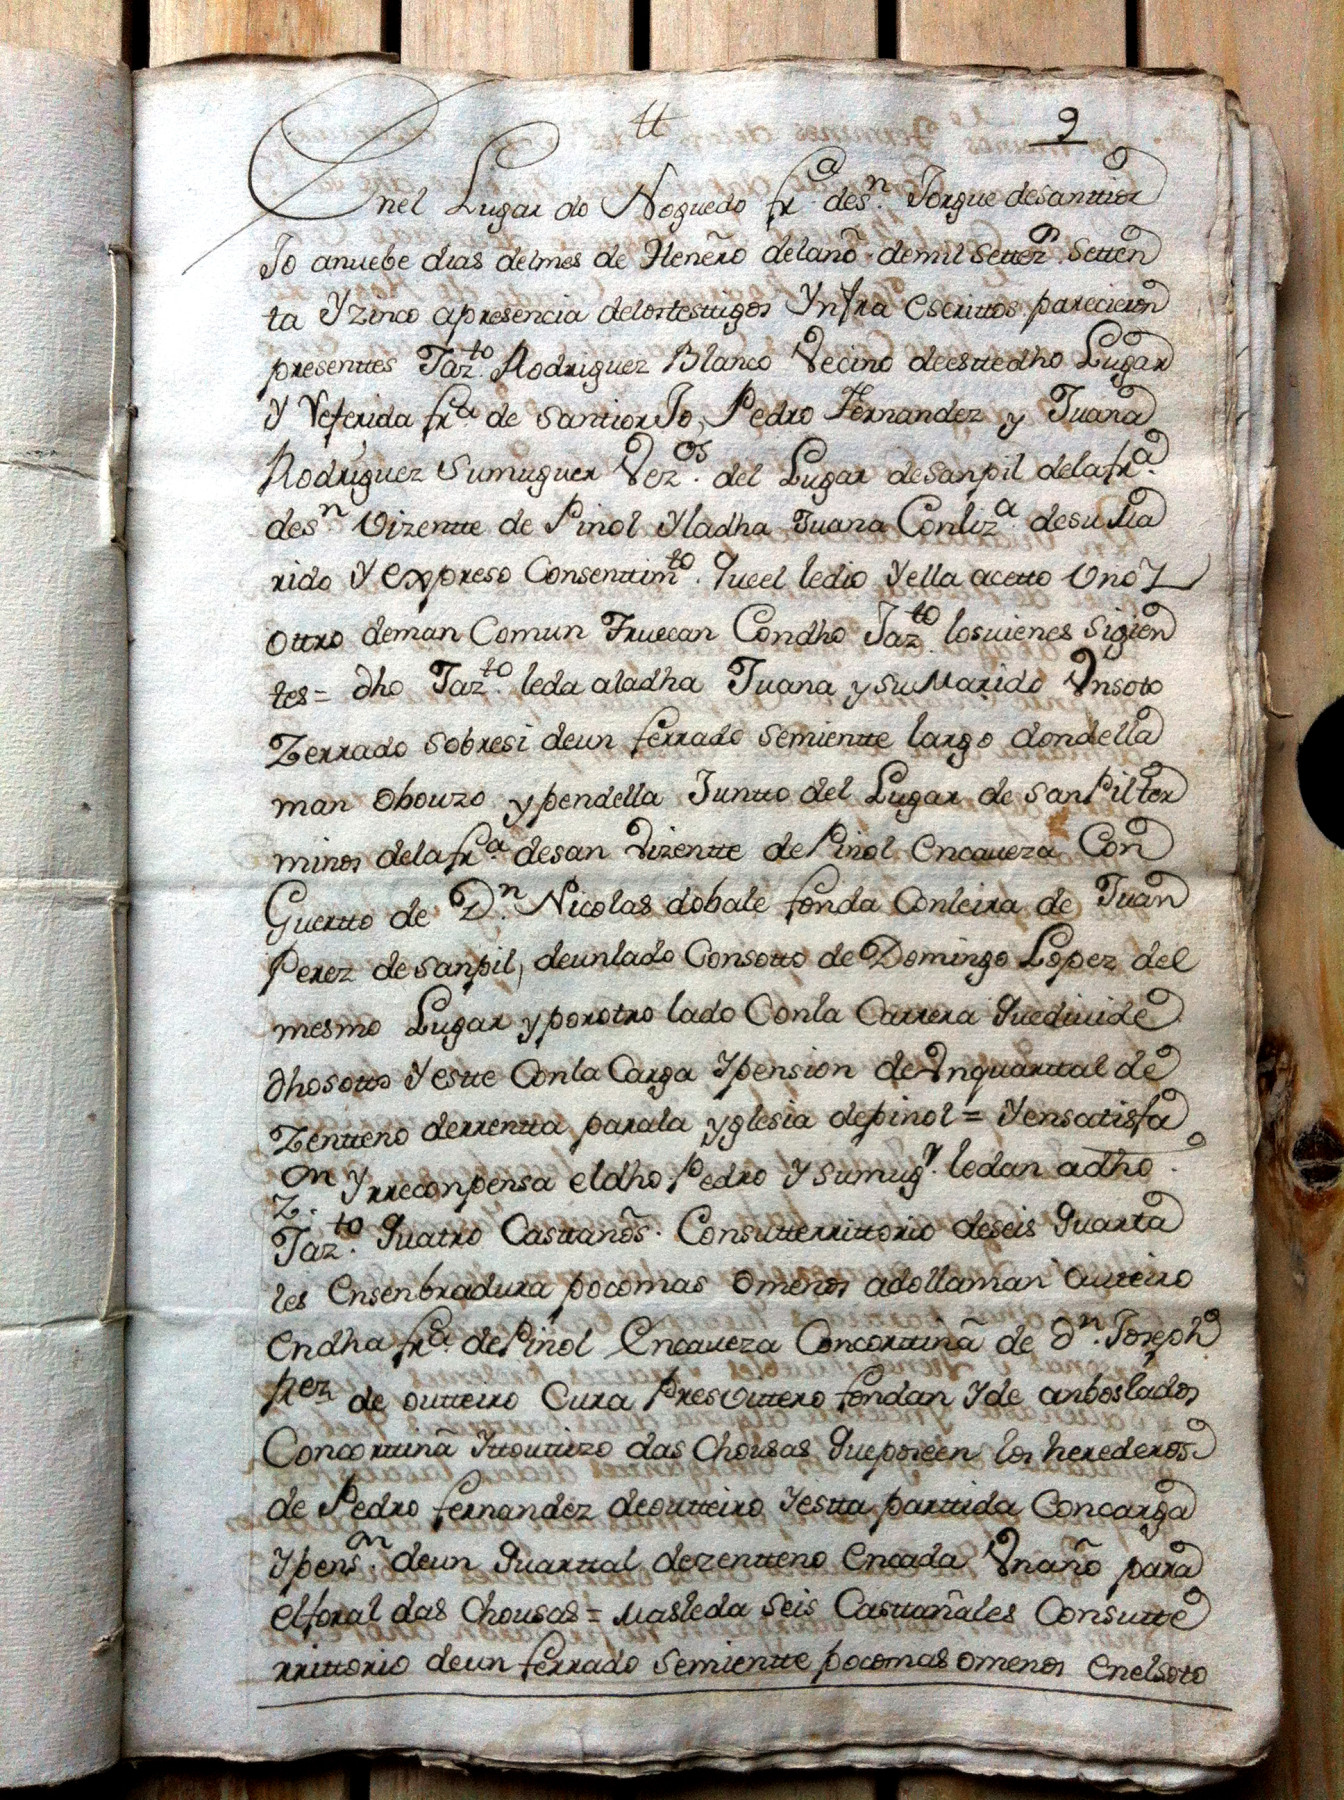 tt 9
Enel Lugar do Noguedo fr.ª des.n Jorgue desanttior
Jo anuebe dias delmes de Henẽro delanõ demil settez.n setten
ta Yzinco apresencia delosttesttigos Ynfra escrittos parecieron
presenttes Jaz.to Rodriguez Blanco Vecino deesttedho Lugar
Y Referida fr.ª de santiorJo, Pedro Fernandez y Juana
Rodriguez sumuguer Vez.os del Lugar desanpil delafr.ª
des.n Vizentte de Pinol Yladha Juana Conliz.ª desuMa
rido Y expreso Consenttim.to Queel ledio Yella acetto Uno Y
ottro deman Comun Truecan Condho Jaz.to losvienes sigien
tes = dho Jaz.to leda aladha Juana y suMarido Vnsoto
Zerrado sobresi deun ferrado semientte largo dondella
man obouzo ypendella Juntto del Lugar de sanPil ter
minos delafr.ª desan Vizentte dePinol encaveza Con
Guertto de D.n Nicolas dobale fonda Conleira de Juan
Perez desanpil, deunlado Consotto de Domingo Lopez del
mesmo Lugar yporotro lado Conla Carrera Quedivide
dhosotto Y estte Conla Carga Ypension de Vnquarttal de
Zentteno derrentta parala yglesia depinol = Yensatisfa
z.on Yrreconpensa eldho Pedro Y sumug.r ledan adho
Jaz.to Quatro Casttanõs. Consutterrittorio deseis Quarta
les Ensenbradura pocomas omenos adollaman outteiro
Endha fr.ª dePiñol Encaveza Concorttinã de D.n Joseph
Prez de outteiro Cura Presvittero fondan Yde anboslados
Concorttinã Yttoutizo das Chousas Queposeen los herederos
de Pedro fernandez deoutteiro Yestta parttida Concarga
Ypens.on deun Quarttal dezentteno Encada Vnaño para
elforal das Chousas = Masleda seis Casttañales Consutte
rrittorio deun ferrado semientte pocomas omenos enelsoto